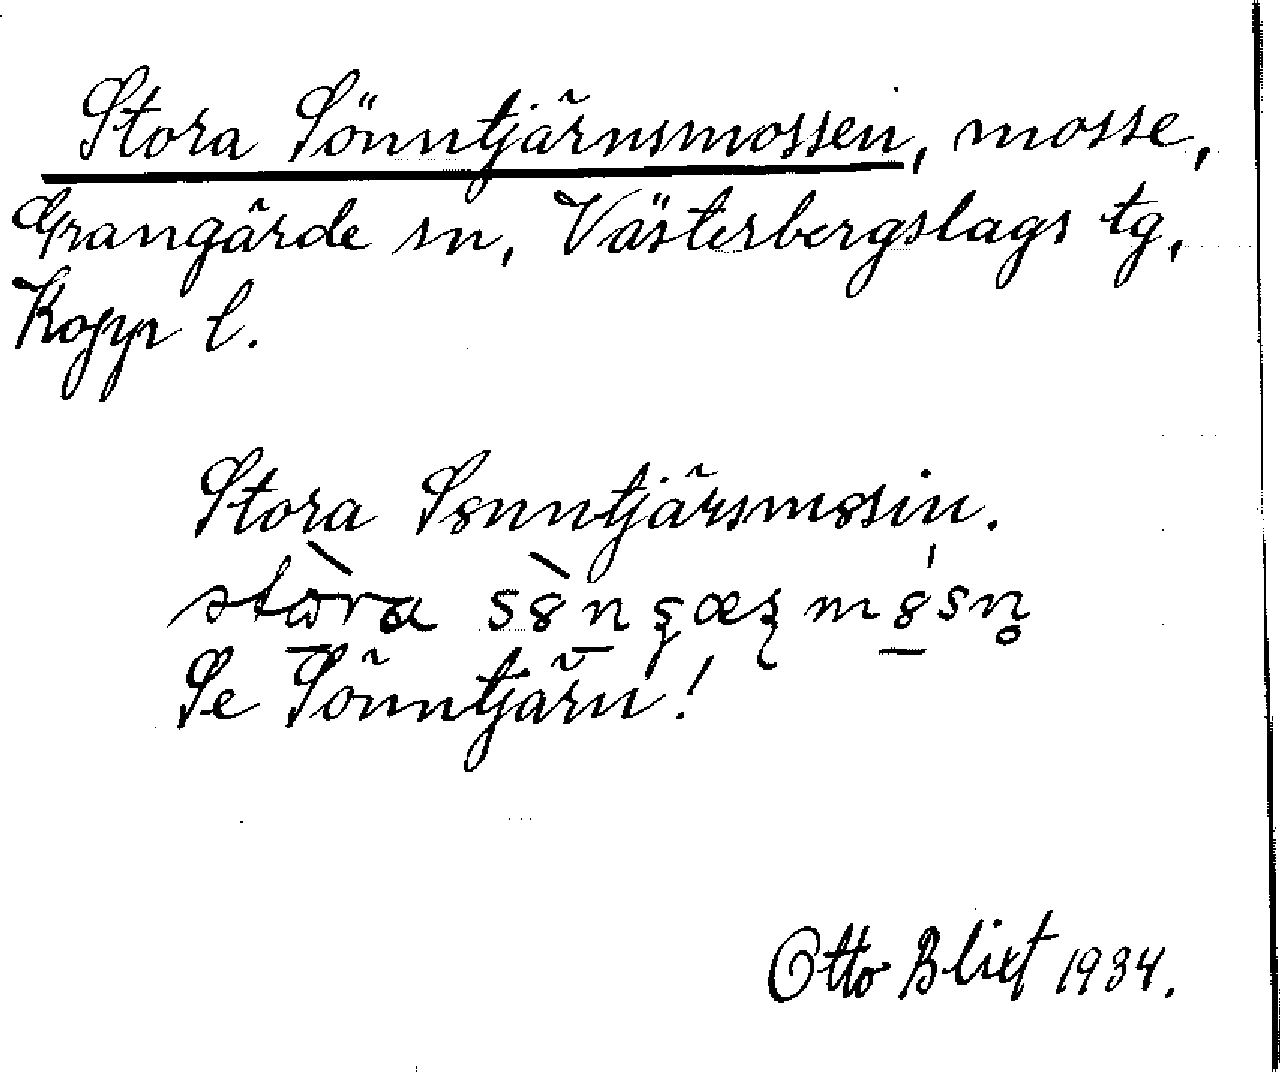 Stora Sönntjärnsmossen, mosse,
Grangärde sn, Västerbergslags tg,
Kopp. l.
Stora S8nntjärsm8sin.
Se Sönntjärn!
Otto Blixt 1934.